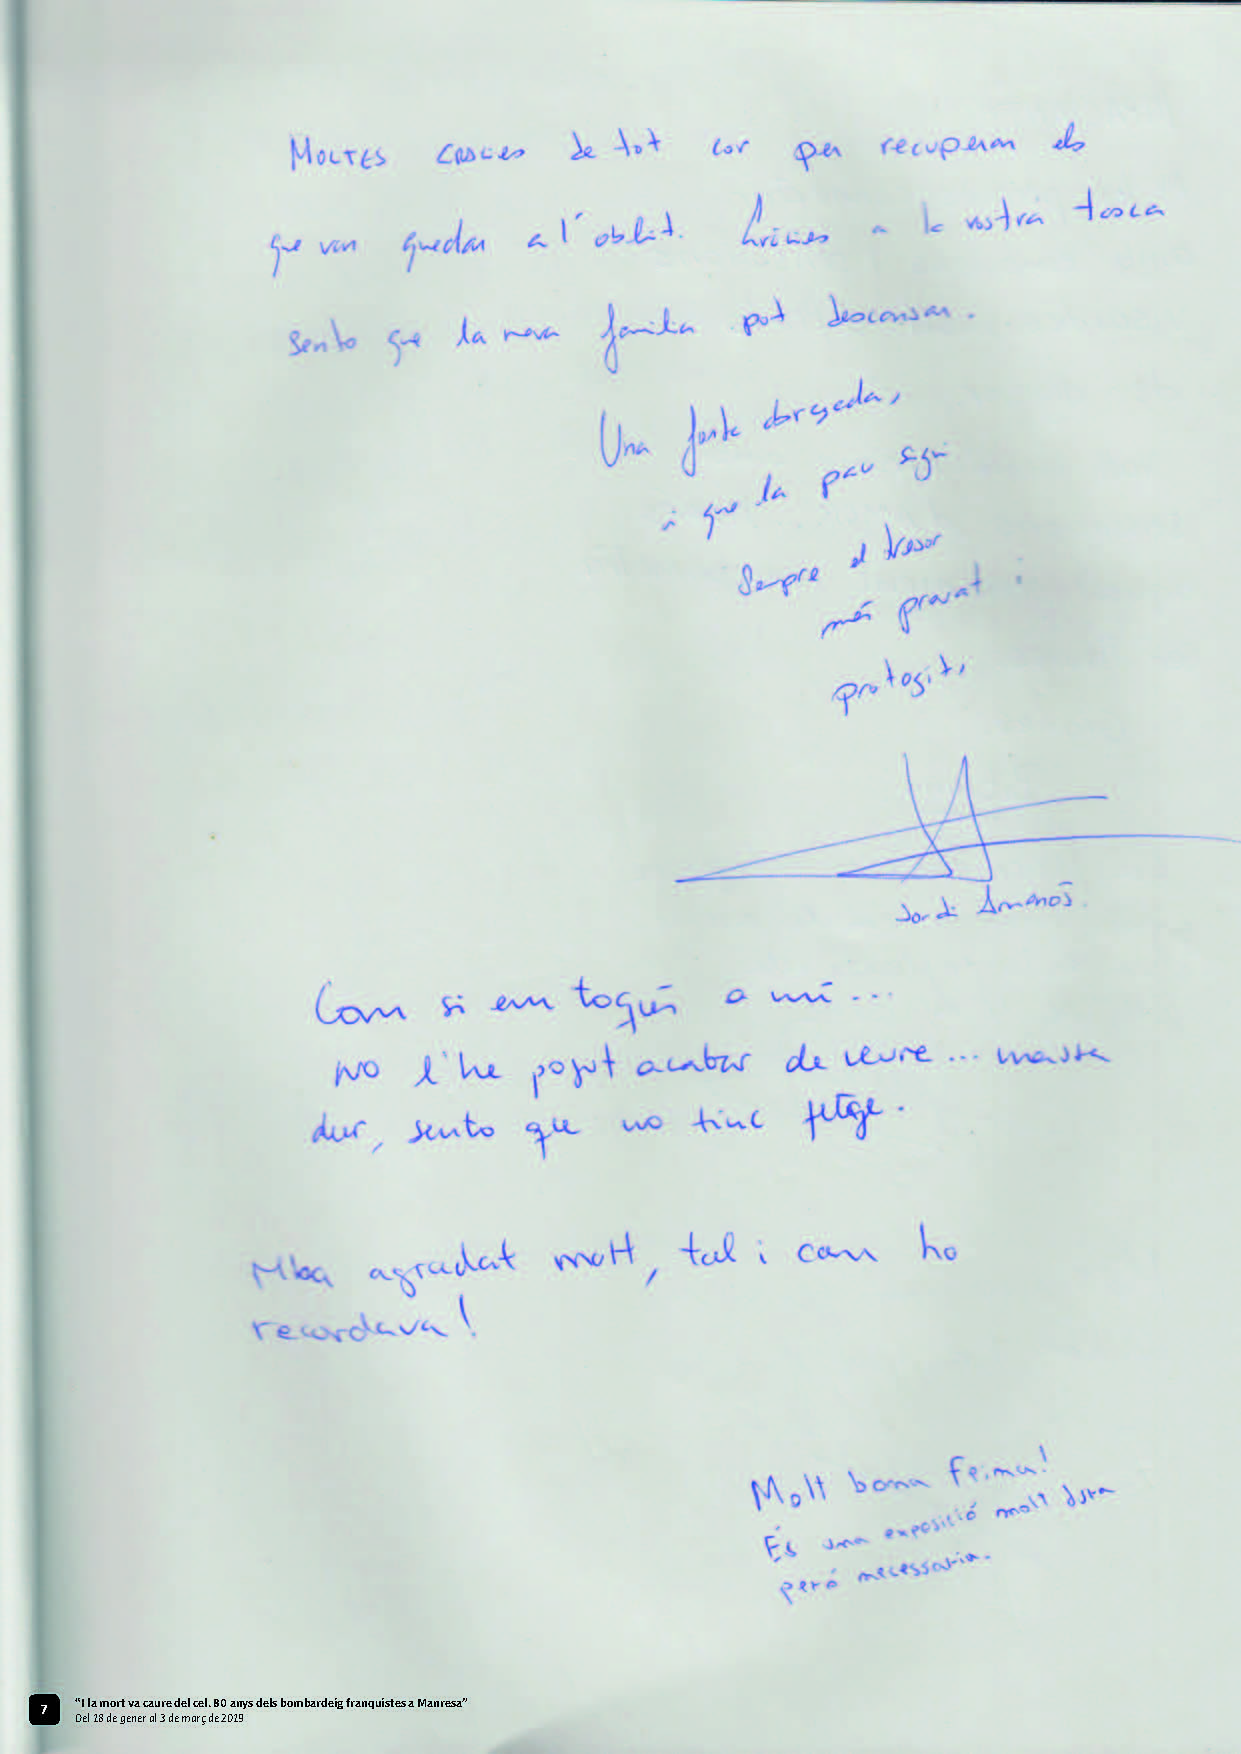 MOLTES GRÀCIES de tot cor per recuperar els
que van quedar a l'oblit. Gràcies a la vostra tasca
sento que la meva família pot descansar.
Una forta abraçada,
i que la pau sigui
sempre el tresor
més preuat i
protegit,
Jordi Amenós.
Com si em toqués a mí...
NO l'he pogut acabar de veure... massa
dur, sento que no tinc fetge.
M'ha agradat molt, tal i com ho
recordava!
Molt bona feina!
És una exposició molt dura
peró necessaria.
7
"I la mort va caure del cel. 80 anys dels bombardeig franquistes a Manresa"
Del 18 de gener al 3 de març de 2019